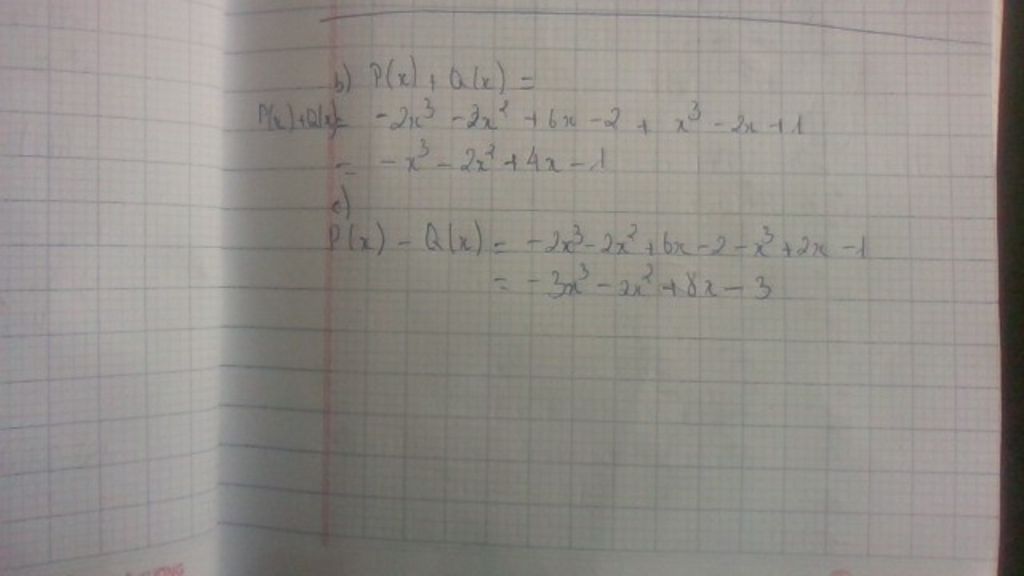 b) P(x) + Q(x) =
P(x)+Q(x)= -2x³ -2x² +6x -2 + x³ -2x +1
= -x³ -2x² +4x -1
c)
P(x) - Q(x) = -2x³-2x²+6x-2-x³+2x-1
= -3x³-2x²+8x-3